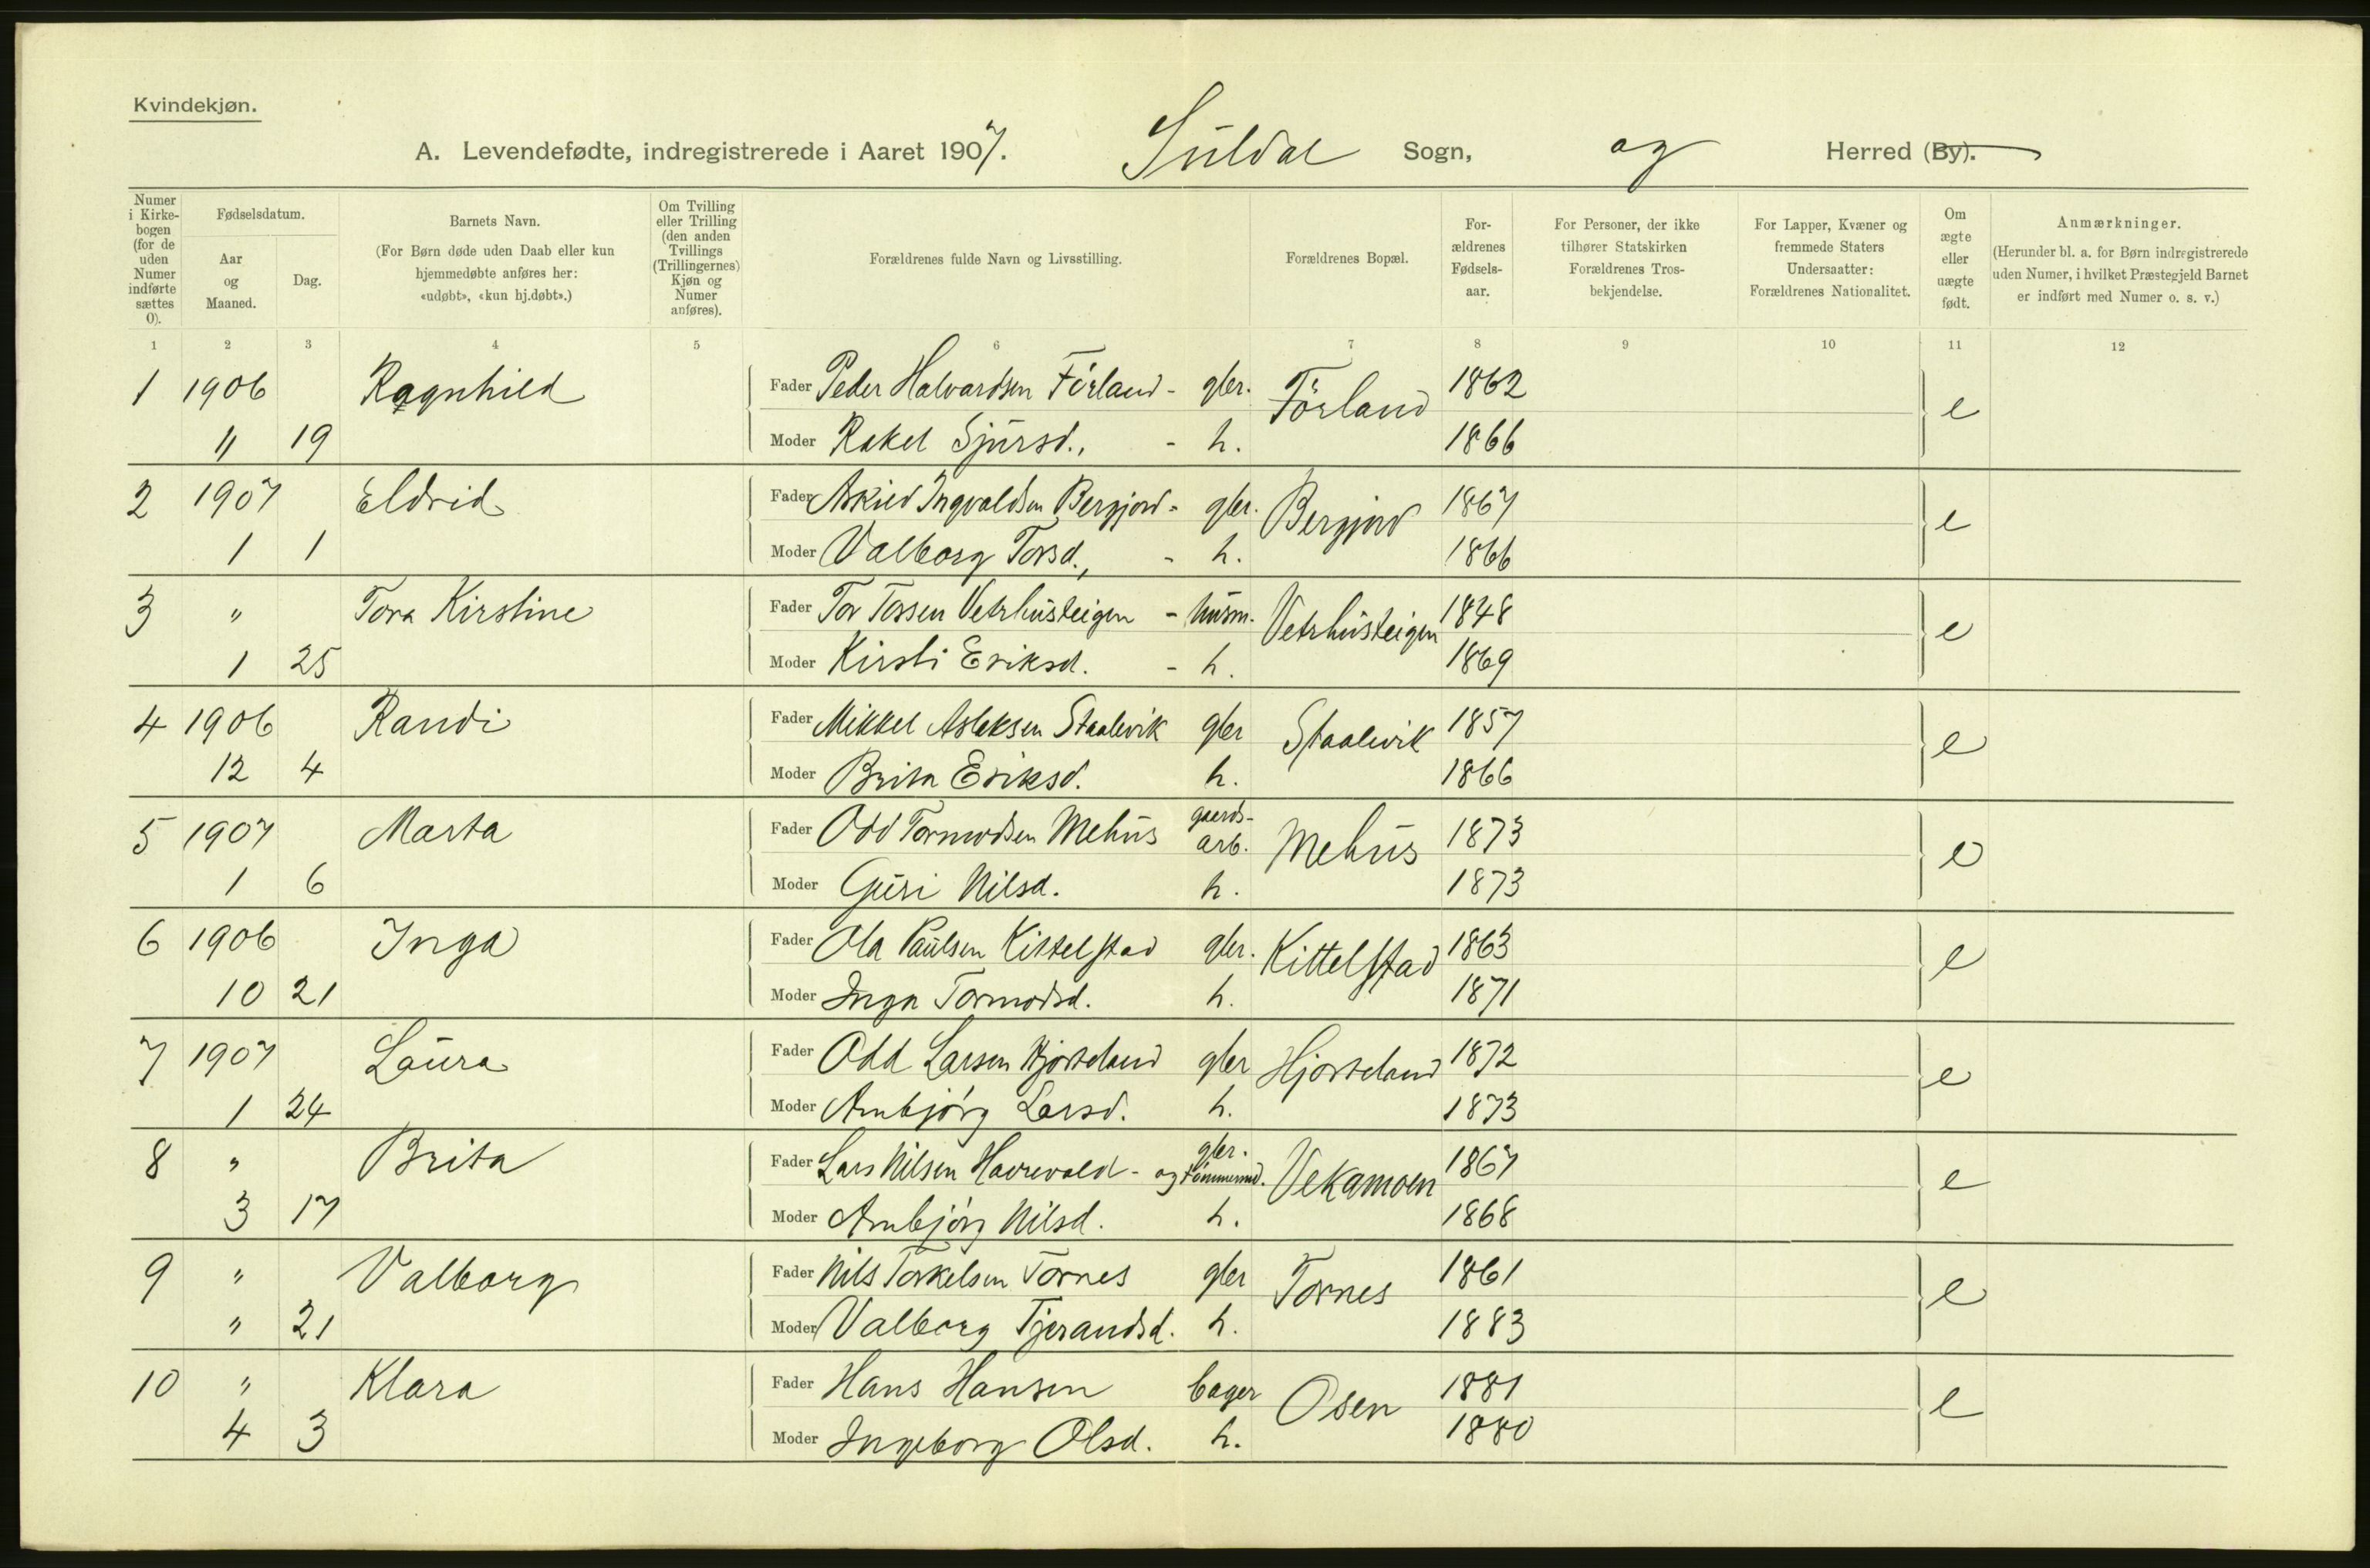 Kvindekjøn.
A. Levendefødte, indregistrerede i Aaret 1907. Suldal Sogn, og Herred (By).
Numer i Kirkebogen (for de uden Numer indførte sættes 0).
Fødselsdatum.
Aar og Maaned.
Dag.
Barnets Navn.
(For Børn døde uden Daab eller kun hjemmedøbte anføres her: «udøbt», «kun hj.døbt».)
Om Tvilling eller Trilling (den anden Tvillings (Trillingernes) Kjøn og Numer anføres).
Forældrenes fulde Navn og Livsstilling.
Forældrenes Bopæl.
Forældrenes Fødselsaar.
For Personer, der ikke tilhører Statskirken Forældrenes Trosbekjendelse.
For Lapper, Kvæner og fremmede Staters Undersaatter: Forældrenes Nationalitet.
Om ægte eller uægte født.
Anmærkninger.
(Herunder bl. a. for Børn indregistrerede uden Numer, i hvilket Præstegjeld Barnet er indført med Numer o. s. v.)
1 2 3 4 5 6 7 8 9 10 11 12
1 1906 Ragnhild Fader Peder Halvardsen Förland - gbr. Förland 1862 e
11 19 Moder Rakel Sjursd., - h. 1866
2 1907 Eldrid Fader Askild Ingvaldsen Bergjord - gbr. Bergjord 1867 e
1 1 Moder Valborg Torsd., - h. 1866
3 " Tora Kirstine Fader Tor Torsen Vetrhusteigen - husm. Vetrhusteigen 1848 e
1 25 Moder Kirsti Eriksd. - h. 1869
4 1906 Randi Fader Mikkel Aslaksen Staalevik gbr Staalevik 1857 e
12 4 Moder Brita Eriksd. h. 1866
5 1907 Marta Fader Odd Tormodsen Mehus gaards-arb. Mehus 1873 e
1 6 Moder Guri Nilsd. h. 1873
6 1906 Inga Fader Ola Paulsen Kittelstad gbr. Kittelstad 1863 e
10 21 Moder Inga Tormodsd. h. 1871
7 1907 Laura Fader Odd Larsen Hjorteland gbr Hjorteland 1872 e
1 24 Moder Arnbjörg Larsd. h. 1873
8 " Brita Fader Lars Nilsen Havrevold - gbr. og tömmermd. Vekamoen 1867 e
3 17 Moder Arnbjörg Nilsd. h. 1868
9 " Valborg Fader Nils Torkelsen Tornes gbr Tornes 1861 e
" 21 Moder Valborg Tjerandsd. h. 1883
10 " Klara Fader Hans Hansen bager Osen 1881 e
4 3 Moder Ingeborg Olsd. h. 1880